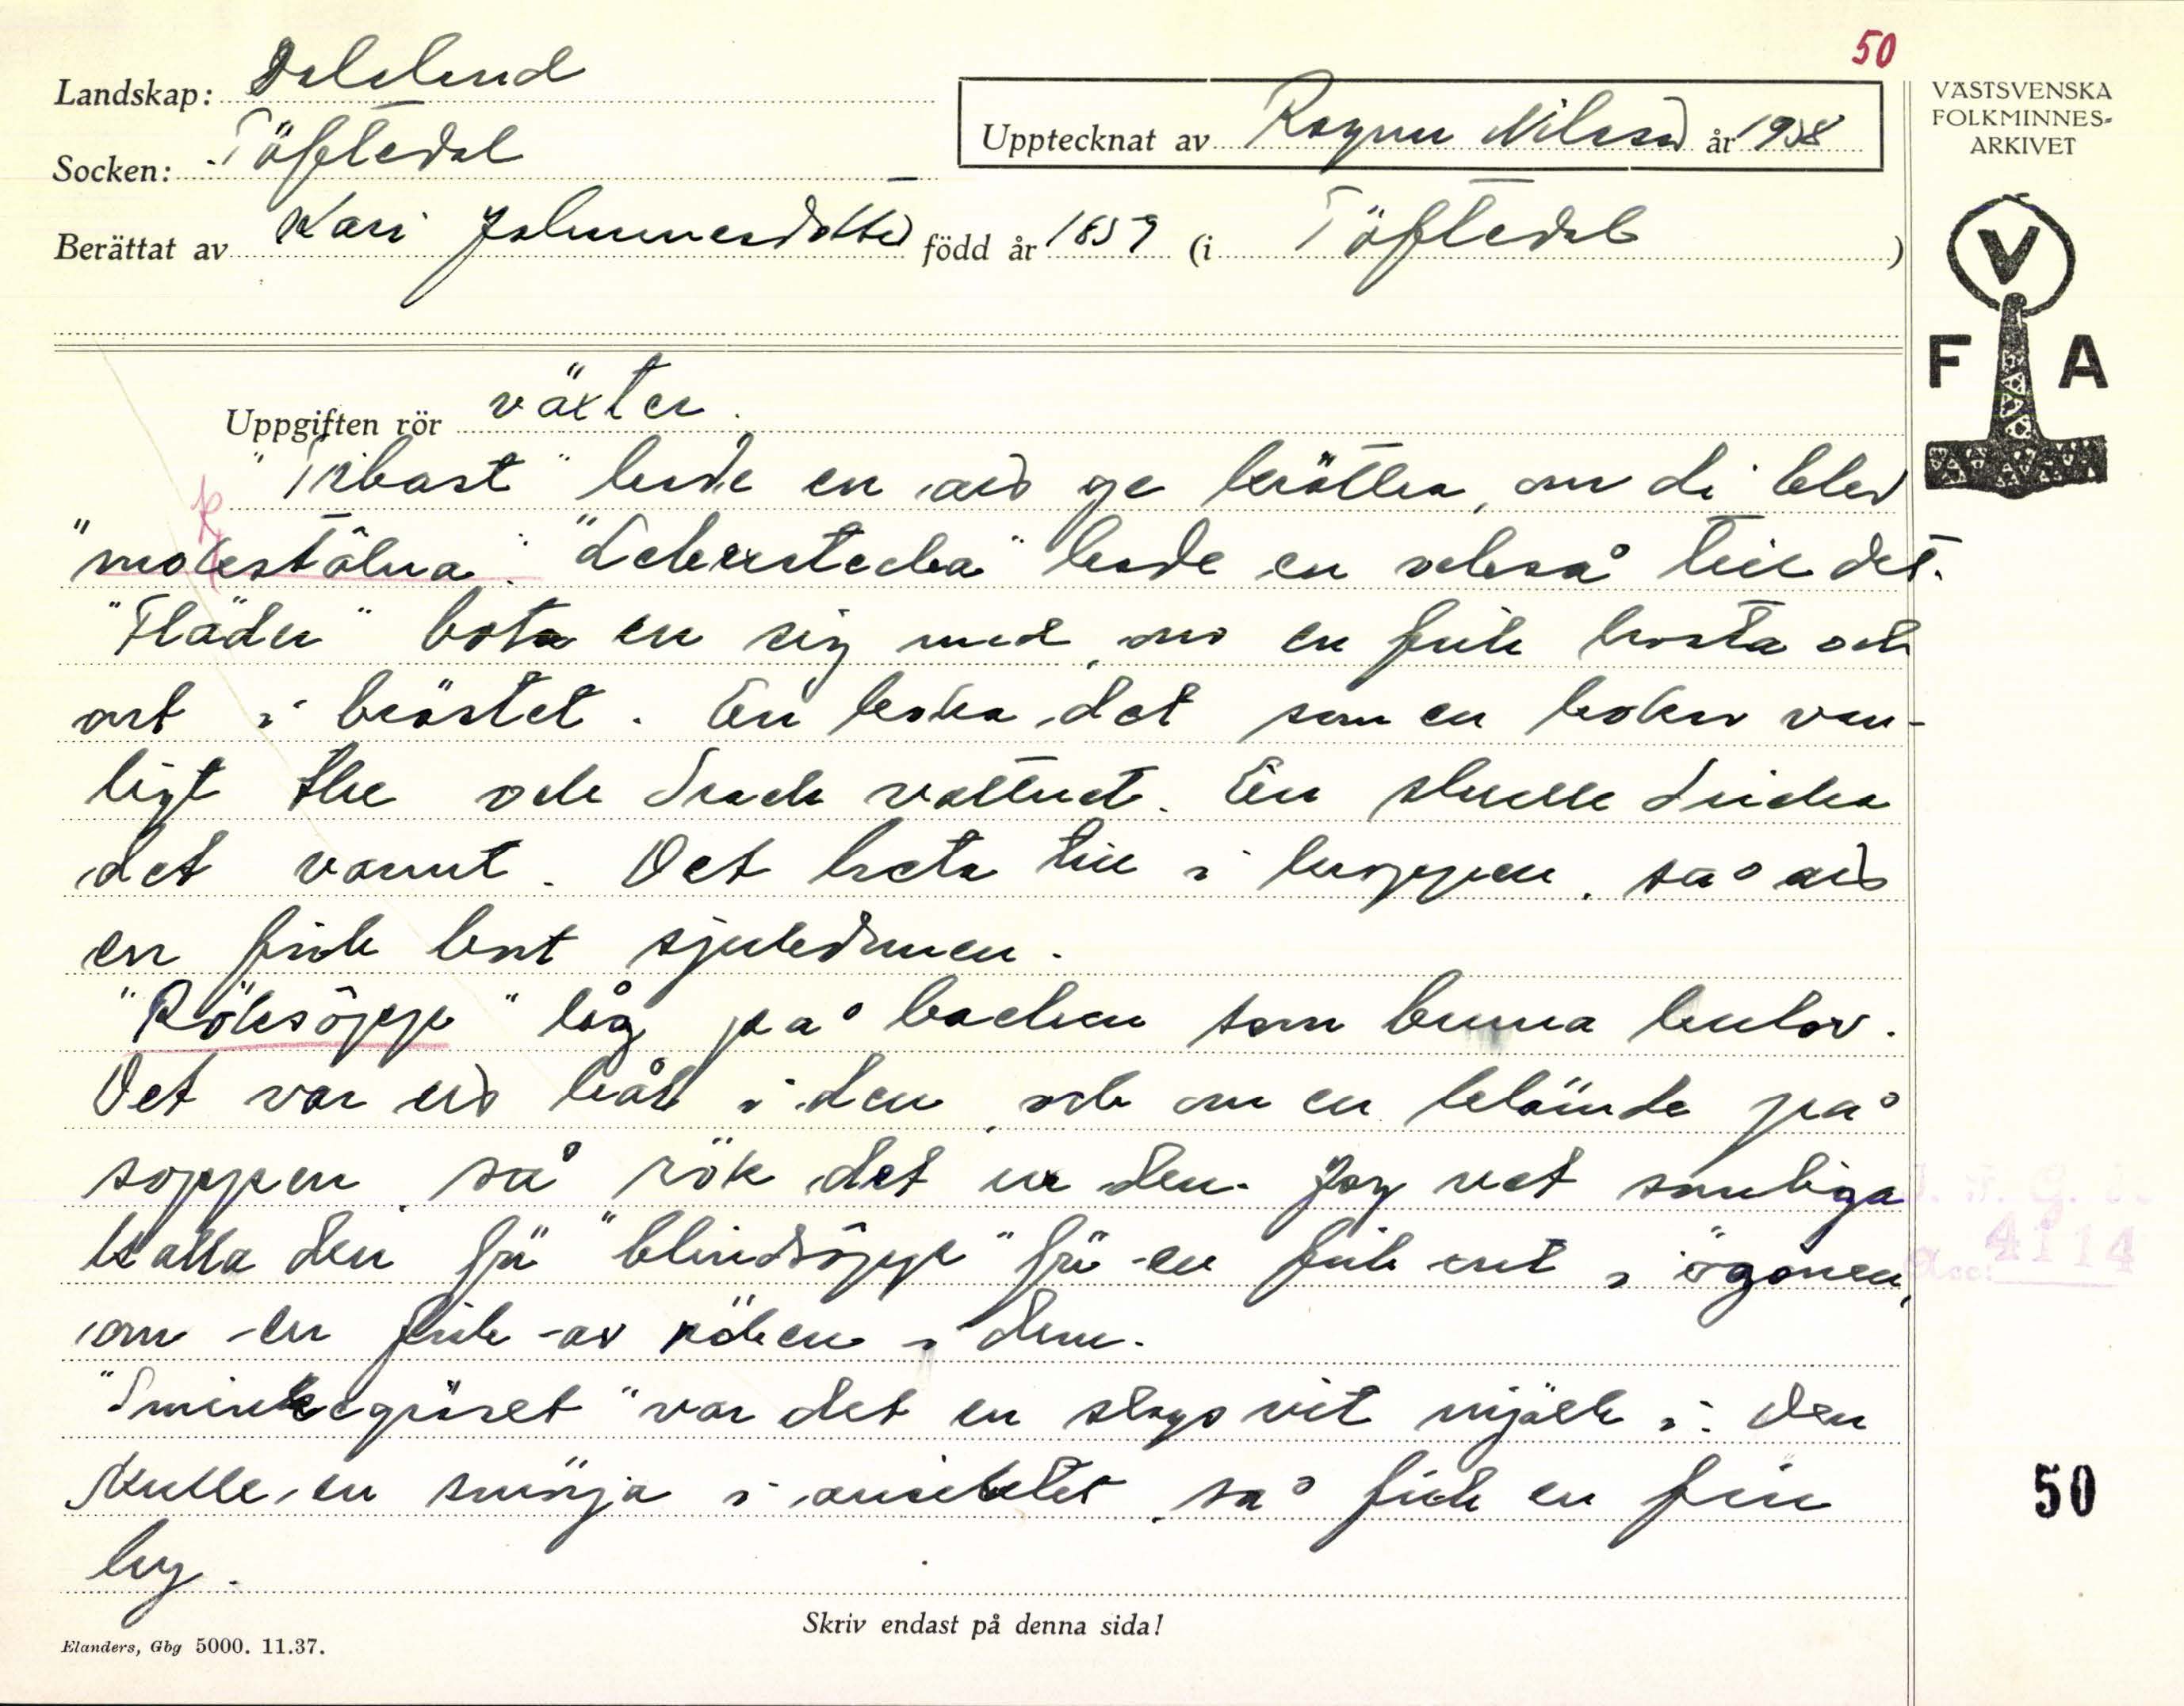 50
Landskap: Dalsland
Socken: Töftedal
Upptecknat av Ragnar Nilsson år 1938
Berättat av Kari Johannesdotter född år 1859 (i Töftedal)
VÄSTSVENSKA
FOLKMINNES-
ARKIVET
V
F A
Uppgiften rör växter.
"Tibast" bruke en ge kröttra, om di blev
"molestålna". "Leberstecka" brude en också till det.
"Fläder" bota en sig med, om en fick hosta och
ont i bröstet. En koka det som en koker van-
ligt the och drack vattnet. En skulle dricka
det varmt. Det heta till i kroppen, så att
en fick bort sjukdomen.
"Röksöpp" låg på backen som bruna kulor.
Det var ett hål i den, och om en klämde på
soppen, så rök det ur den. Jag vet somliga
kalla den för "blindsöpp" för en fick ont i ögonen,
om en fick av röken i dem.
"Sminkegräset" var det en slags vit mjölk i. Den
skulle en smörja i ansiktet, så fick en fin
hy.
Skriv endast på denna sida!
Elanders, Gbg 5000. 11.37.
Acc: 4114
50